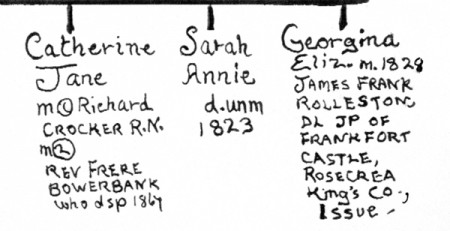 Catherine
Jane
m① Richard
CROCKER R.N.
m②
REV FRERE
BOWERBANK
who dsp 1867
Sarah
Annie
d.unm
1823
Georgina
Eliz. m. 1828
JAMES FRANK
ROLLESTON
DL JP OF
FRANKFORT
CASTLE,
ROSECREA
King's Co.,
Issue -